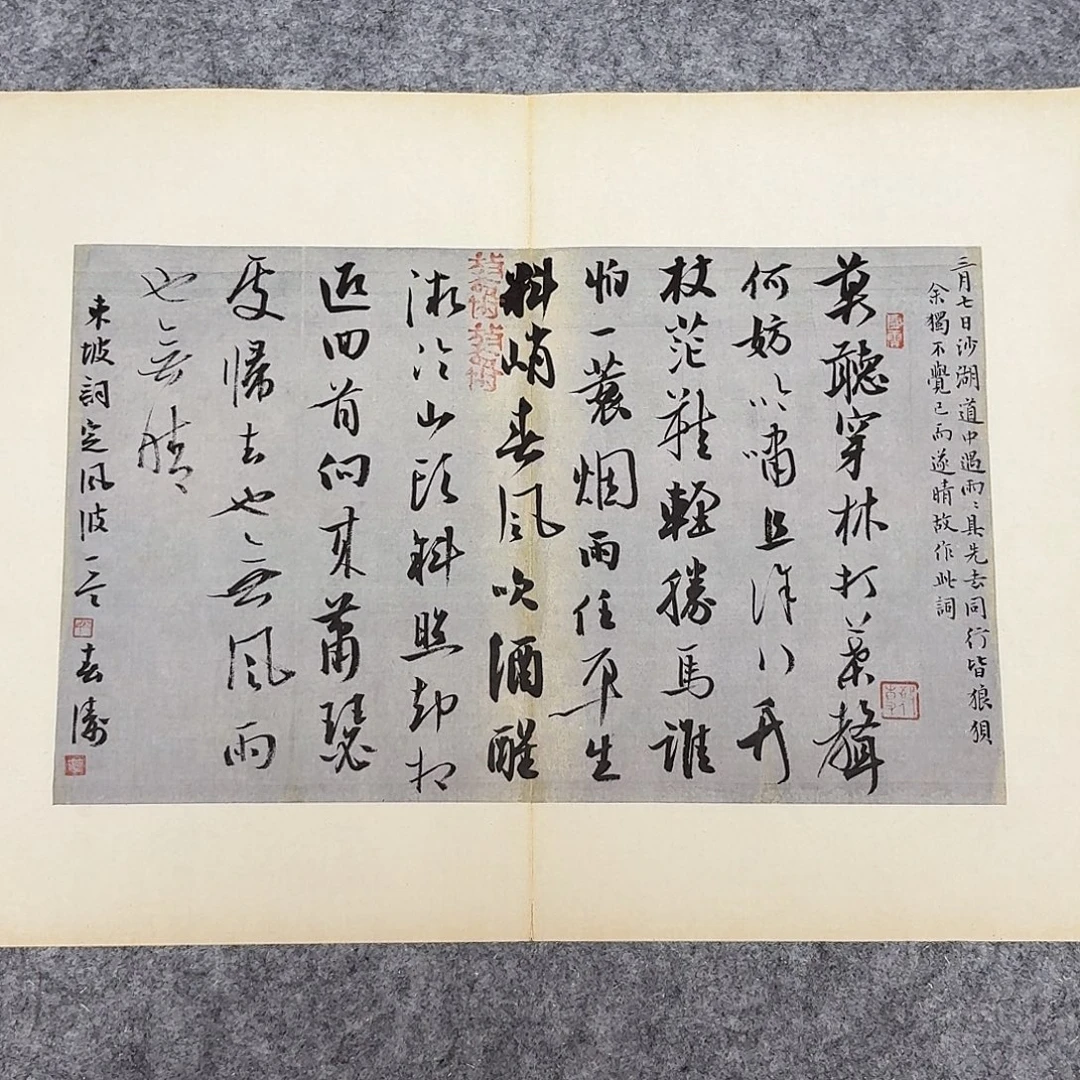 三月七日沙湖道中遇雨〻具先去同行皆狼狽
余獨不覺已而遂晴故作此詞
莫聽穿林打葉聲
何妨吟嘯且徐行竹
杖芒鞋輕勝馬誰
怕一蓑烟雨任平生
料峭春風吹酒醒
微冷山頭斜照却相
迎回首向來蕭瑟
處歸去也無風雨
也無晴
東坡詞定風波一首